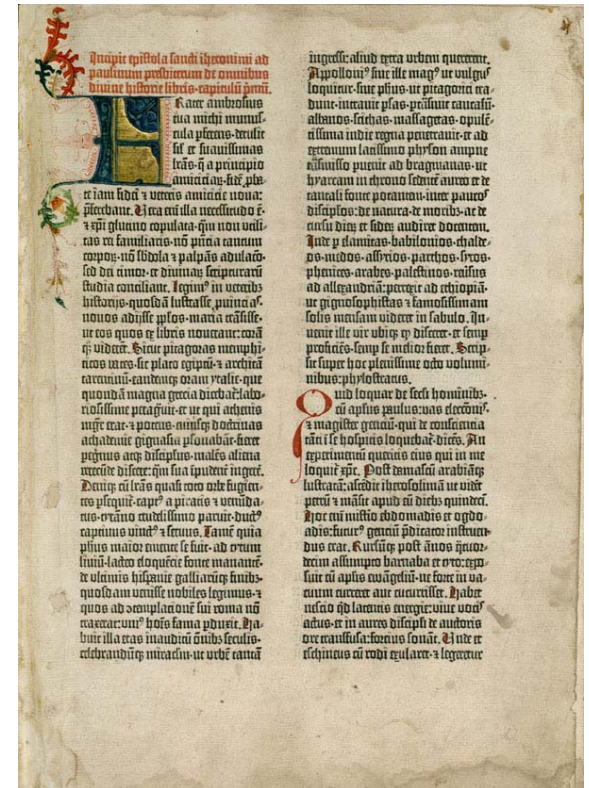 Incipit epistola sancti iheronimi ad
paulinum presbiterum de omnibus
divine historie libris·capitulū pͥmū.
Frater ambrosius
tua michi munus-
cula pferens·detulit
sil̄ et suavissimas
lr̄as·q̄ a principio
amiciciaꝝ·fidē pbate
iam fidei ⁊ veteris amicicie noua:
p̄ferebant. Vera em̄ illa necessitudo ē·
⁊ xp̄i glutino copulata·qm̄ non utili-
tas rei familiaris·nō pn̄cia tantum
corpoꝝ·nō sb̄dola ⁊ palpās adulacō·
sed dei timor·et diuinaꝝ scripturarū
studia conciliant. Legimꝰ in veteribꝫ
historijs·quosdā lustrasse, puinciaſ·
nouos adijsse pplos·maria trāsisse·
ut eos quos ex libris nouerant: corā
qꝫ viderēt. Sicut pitagoras memphi-
ticos vates·sic plato egiptū·⁊ architā
tarentinū·eandemqꝫ oram ytalie·que
quondā magna grecia dicebat᷑: labo-
riosissime peragrauit·et ut qui athenis
mgr̄ erat·⁊ potens·cuiusqꝫ doctrinas
achademie gignasia psonabāt·fieret
pegrinus atqꝫ discipulus·malēs aliena
verecūde discere: qm̄ sua īpudent᷑ ingerē.
Deniqꝫ cū lr̄as quasi toto orbe fugien-
tes psequit᷑·captꝰ a piratis ⁊ venūda-
tus·tyrāno crudelissimo paruit·ductꝰ
captiuus vinctꝰ ⁊ seruus. Tamē quia
ph̄us maior emente se fuit·ad tytum
liuiū·lacteo eloquētie fonte manantē·
de vltimis hispanie galliarūqꝫ finibꝫ·
quosdam venisse nobiles legimus·⁊
quos ad ɔtemplacionē sui roma nō
traxerat: uniꝰ hoīs fama pduxit. Ha-
buit illa etas inauditū om̄ibꝫ seculis·
celebrandūqꝫ miraclm̄·ut urbē tantā
ingressi: aliud extra urbem quererent.
Appolloniꝰ siue ille magꝰ ut vulguſ
loquitur·siue ph̄us·ut pitagorici tra-
dunt·intrauit psas·p̄trāsiuit caucasū·
albanos·scithas·massagetas·opulē-
tissima indie regna penetrauit·et ad
extremum latissimo physon ampne
trāsmisso puenit ad bragmanas·ut
hyarcam in throno sedentē aureo et de
tantali fonte potantem·inter paucoſ
discipłos·de natura·de moribꝫ·ac de
cursu dierꝝ et sideꝝ audiret docentem.
Inde p elamitas·babilonios·chalde-
os·medos·assyrios·parthos·syros·
phenices·arabes·palestinos·reūsus
ad allexandriā: perrexit ad ethiopiā·
ut gignosophistas ⁊ famosissimam
solis mensam videret in sabulo. In-
uenit ille vir ubiqꝫ qd̄ disceret·et semp
proficiēs·semp se melior fieret. Scrip-
sit super hoc plenissime octo volumi-
nibus: phylostratus.
Quid loquar de secl̄i hominibꝫ·
cū apl̄us paulus: vas electōniſ·
⁊ magister gentiū·qui de consciencia
tāti ī se hospitis loquebat᷑·dicēs. An
experimentū queritis eius qui in me
loquit᷑ xp̄c. Post damascū arabiāqꝫ
lustratā: ascēdit iherosolimā ut vidēt
petrū ⁊ māsit apud eū diebꝫ quindeci.
Hoc em̄ misterio ebdomadis et ogdo-
adis: futurꝰ gentiū p̄dicator instruen-
dus erat. Rursūqꝫ post ānos qͣtuor-
decim assumpto barnaba et tyto: expo-
suit cū apl̄is ewāgeliū·ne forte in va-
cuum curreret aut cucurrisset. Habet
nescio qd̄ latentis energie: viue vociſ
actus·et in aures discipl̄i de auctoris
ore transfusa: forcius sonāt. Unde et
eschineus cū rodi exularet·⁊ legeretur